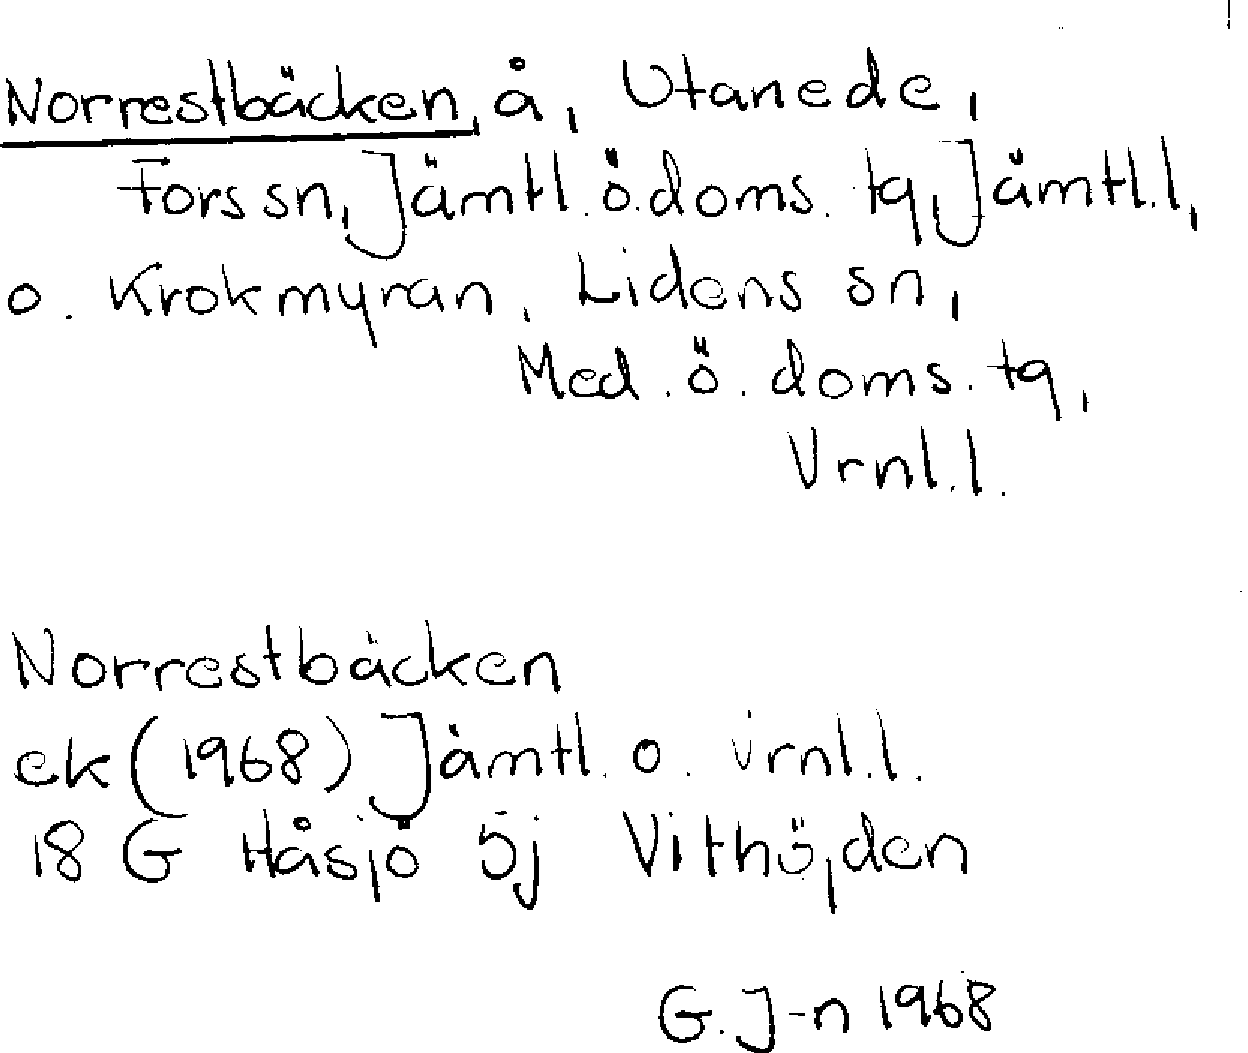 Norrestbäcken, å, Utanede,
Fors sn, Jämtl. ö. doms. tg, Jämtl. l,
o. Krokmyran, Lidens sn,
Med. ö. doms. tg,
Vrnl. l.
Norrestbäcken
ek (1968) Jämtl. o. vrnl. l.
18 G Håsjö 5j Vithöjden
G. J-n 1968